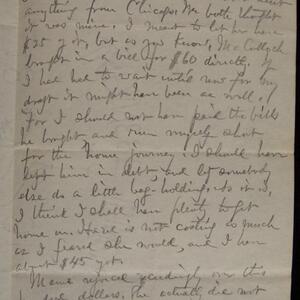 anything from Chicago. We both thought
it was mine. I meant to let her have
$25 of it, but as you know, McCulloch
brought in a bill for $60 directly. If
I had had to wait until now for my
draft it might have been as well,
for I should not have paid the bills
he brought and run myself short
for the home journey. I should have
left him in debt and let somebody
else do a little bag-holding. As it is,
I think I shall have plenty to get
home on. Hazel is not costing as much
as I feared she would, and I have
about $45 yet.
Mame rejoiced exceedingly over this
hundred dollars. She actually did not